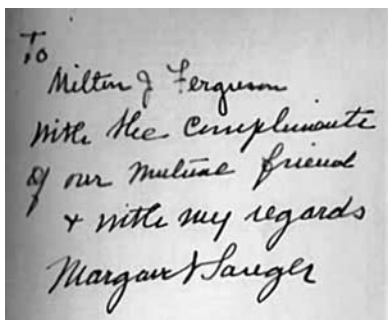 To
Milton J Ferguson
with the compliments
of our mutual friend
& with my regards
Margaret Sanger